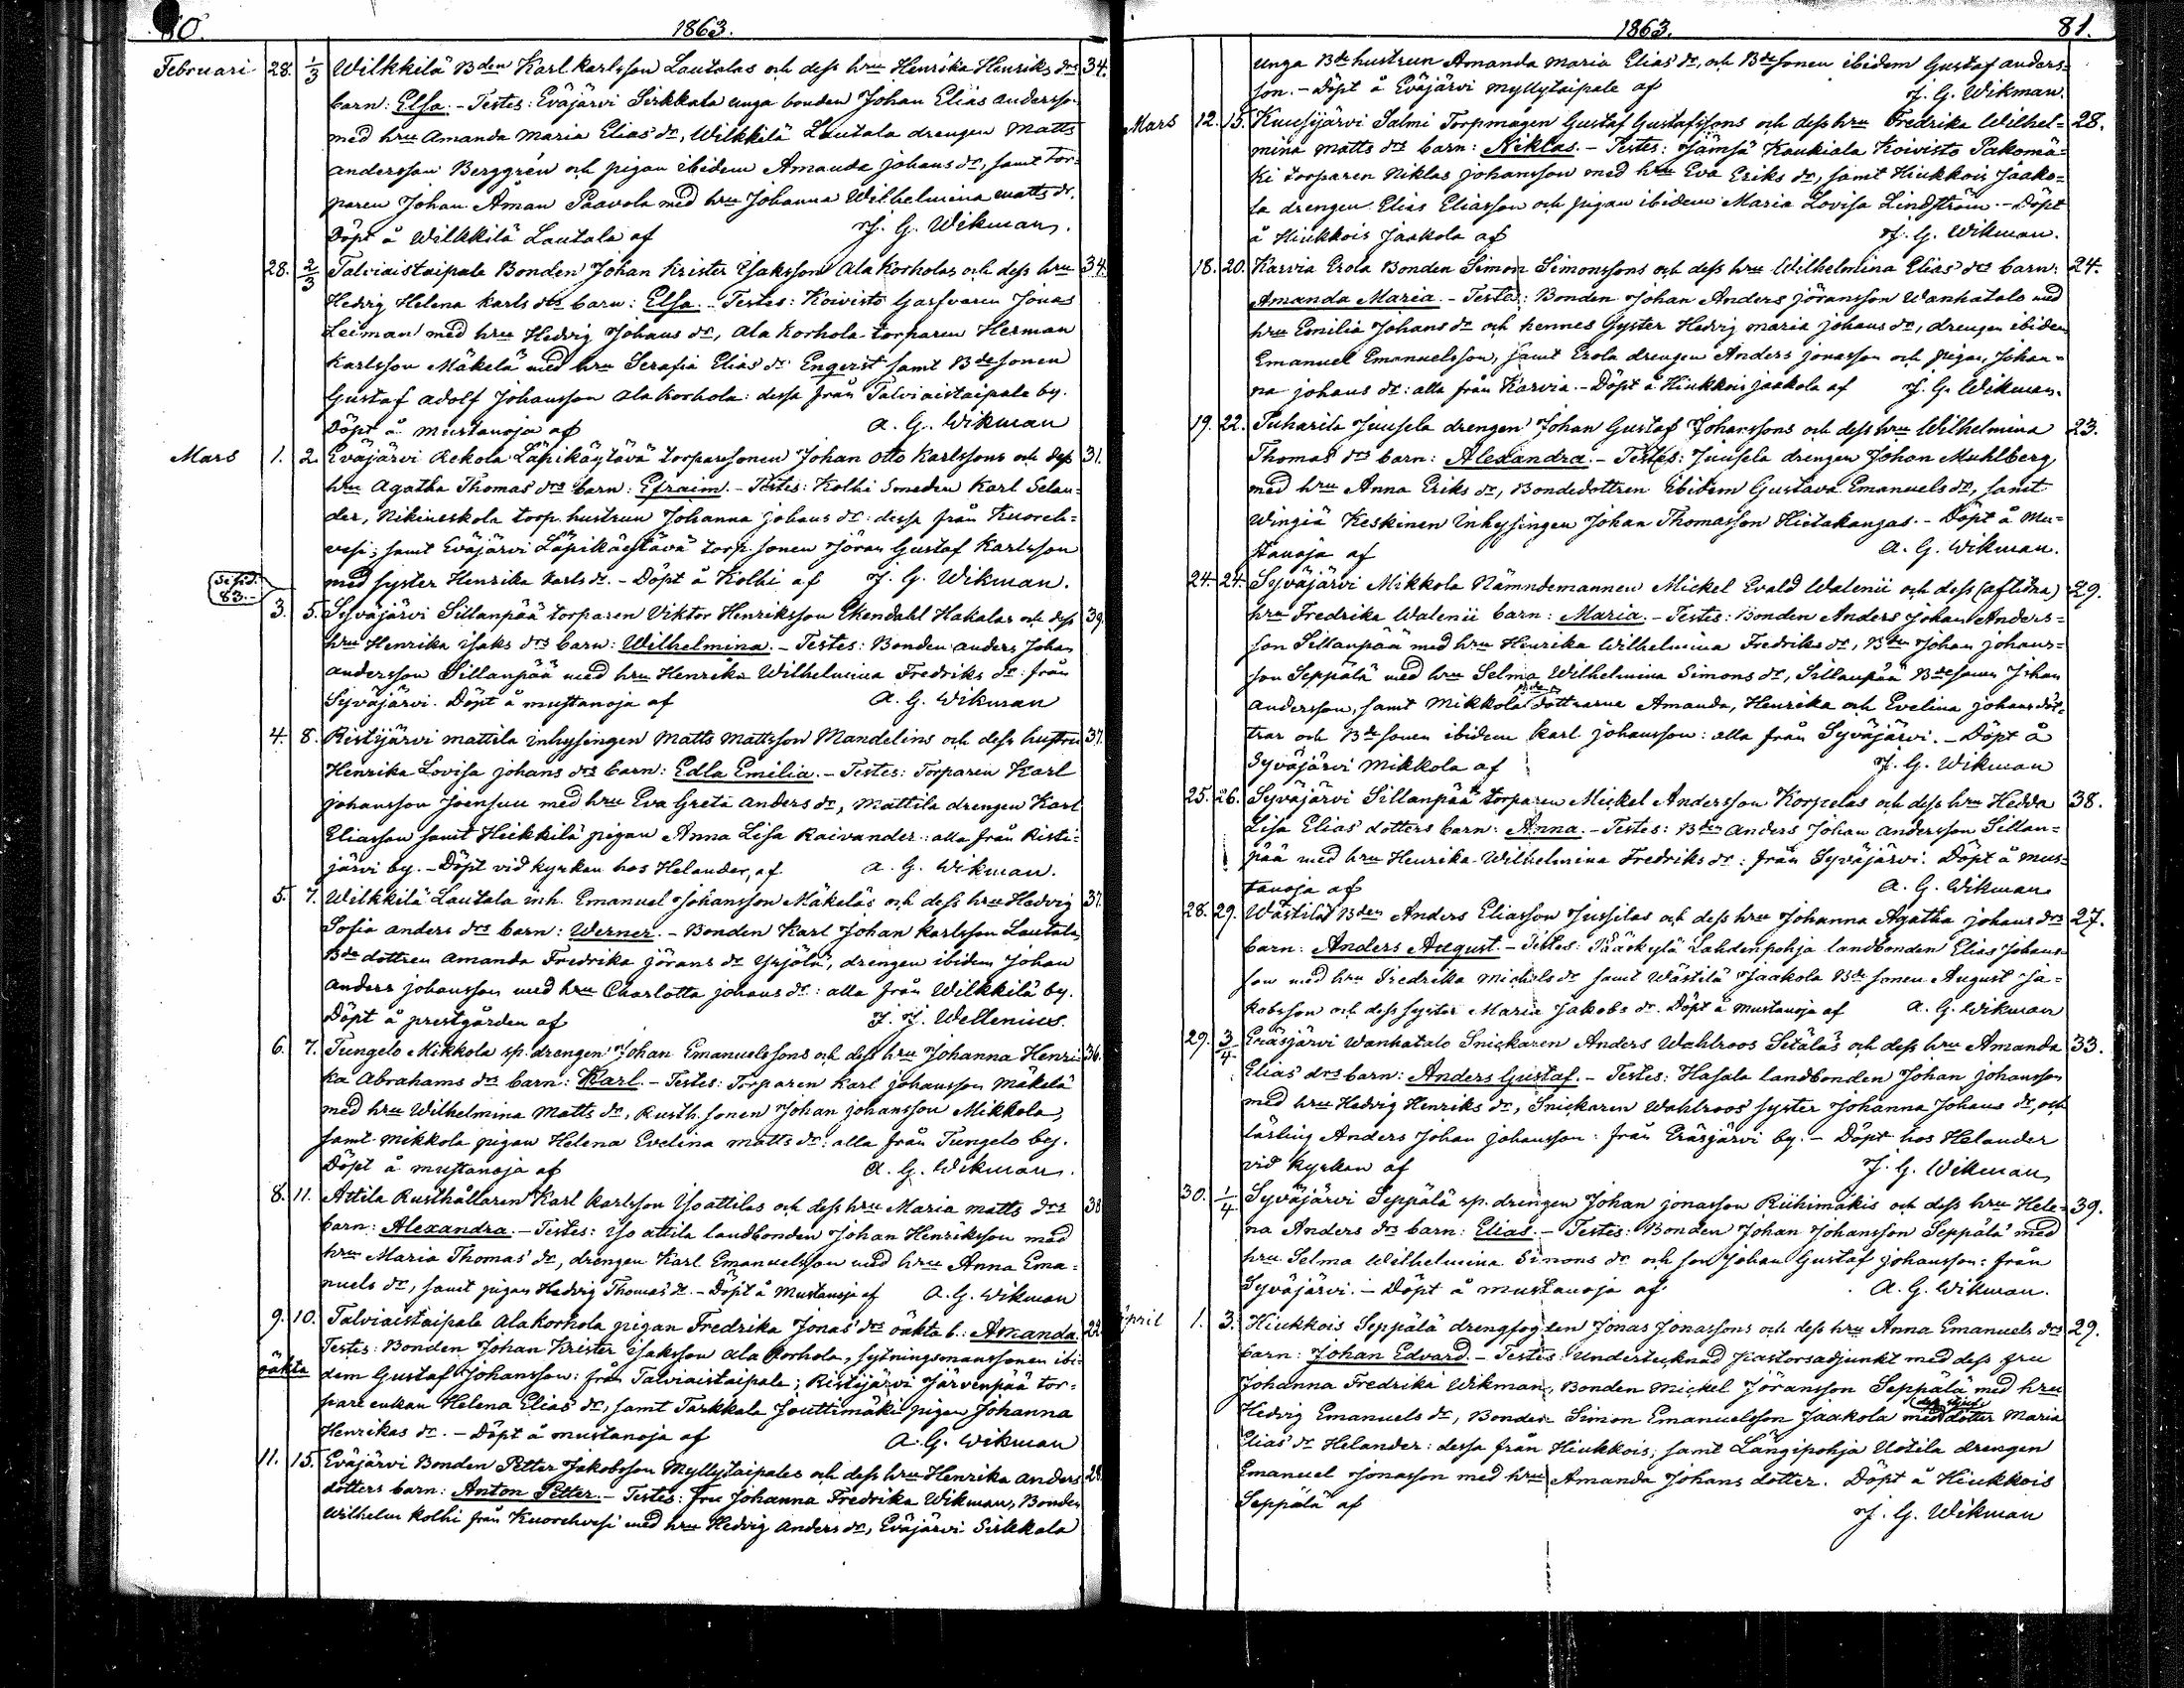 80. 1863.
Februari 28. 1/3 Wilkkilä Bden Karl Karlsson Lautalas och dess hru Henrika Henriks drs 34.
barn: Elsa. - Testes: Eväjärvi Sirkkala unga bonden Johan Elias Andersson
med hru Amanda Maria Elias dr, Wilkkilä Lautala drengen Matts
Andersson Berggrén och pigan ibidem Amanda Johans dr, samt Tor-
paren Johan Åman Paavola med hru Johanna Wilhelmina Matts dr.
Döpt å Wilkkilä Lautala af J. G. Wikman.
28. 2/3 Talviaistaipale Bonden Johan Krister Isaksson Ala Korholas och dess hru 34.
Hedvig Helena Karls drs barn: Elsa. - Testes: Koivisto Garfvaren Jonas
Leiman med hru Hedvig Johans dr, Ala Korhola torparen Herman
Karlsson Mäkelä med hru Serafia Elias dr Engerist samt Bde sonen
Gustaf Adolf Johansson Ala Korhola: dessa från Talviaistaipale by.
Döpt å Mustanoja af A. G. Wikman
Mars 1. 2. Eväjärvi Rekola Läpikäytävä torparsonen Johan Otto Karlssons och dess 31.
hru Agatha Thomas drs barn: Efraim. - Testes: Kolhi Smeden Karl Selan-
der, Nikineskola torp. hustrun Johanna Johans dr: dessa från Kuoreh-
vesi; samt Eväjärvi Läpikäytävä torp. sonen Jöran Gustaf Karlsson
med syster Henrika Karls dr. - Döpt å Kolhi af J. G. Wikman.
se sid. 83.-
3. 5. Syväjärvi Sillanpää torparen Viktor Henriksson Ekendahl Hakalas och dess 39.
hru Henrika Isaks drs barn: Wilhelmina. - Testes: Bonden Anders Johan
Andersson Sillanpää med hru Henrika Wilhelmina Fredriks dr: från
Syväjärvi. Döpt å Mustanoja af A. G. Wikman
4. 8. Ristijärvi Mattila inhysingen Matts Mattsson Mandelins och dess hustru 37.
Henrika Lovisa Johans drs barn: Edla Emilia. - Testes: Torparen Karl
Johansson Joensuu med hru Eva Greta Anders dr, Mattila drengen Karl
Eliasson samt Heikkilä pigan Anna Lisa Raivander: alla från Risti-
järvi by. - Döpt vid kyrkan hos Helander, af A. G. Wikman.
5. 7. Wilkkilä Lautala inh. Emanuel Johansson Mäkeläs och dess hru Hedvig 37.
Sofia Anders drs barn: Werner. - Bonden Karl Johan Karlsson Lautala,
Bde dottren Amanda Fredrika Jörans dr Yrjölä, drengen ibidem Johan
Anders Johansson med hru Charlotta Johans dr: alla från Wilkkilä by.
Döpt å prestgården af J. J. Wellenius.
6. 7. Tungelo Mikkola sp. drengen Johan Emanuelssons och dess hru Johanna Henri- 36.
ka Abrahams drs barn: Karl. - Testes: Torparen Karl Johansson Mäkelä
med hru Wilhelmina Matts dr, Rusth. sonen Johan Johansson Mikkola,
samt Mikkola pigan Helena Evelina Matts dr: alla från Tungelo by.
Döpt å Mustanoja af A. G. Wikman.
8. 11. Attila Rusthållaren Karl Karlsson Iso attilas och dess hru Maria Matts drs 38
barn: Alexandra. - Testes: Iso attila landbonden Johan Henriksson med
hru Maria Thomas dr, drengen Karl Emanuelsson med hru Anna Ema-
nuels dr, samt pigan Hedvig Thomas dr. - Döpt å Mustanoja af A. G. Wikman
9. 10. Talviaistaipale Alakorhola pigan Fredrika Jonas drs oäkta b.: Amanda. 22
Testes: Bonden Johan Krister Isaksson Ala Korhola, sytningsmanssonen ibi-
oäkta dem Gustaf Johansson: från Talviaistaipale; Ristijärvi Järvenpää tor-
pare enkan Helena Elias dr, samt Tarkkala Jouttimäki pigan Johanna
Henrikas dr. - Döpt å Mustanoja af A. G. Wikman
11. 15. Eväjärvi Bonden Petter Jakobsson Myllytaipales och dess hru Henrika Anders 28.
dotters barn: Anton Petter. - Testes: Fru Johanna Fredrika Wikman, Bonden
Wilhelm Kolhi från Kuorehvesi med hru Hedvig Anders dr, Eväjärvi Sirkkala
1863. 81.
unga Bde hustrun Amanda Maria Elias dr, och Bde sonen ibidem Gustaf Anders-
son. - Döpt å Eväjärvi Myllytaipale af J. G. Wikman.
Mars 12. 15. Kuusijärvi Salmi Torpmågen Gustaf Gustafssons och dess hru Fredrika Wilhel- 28.
mina Matts drs barn: Niklas. - Testes: Jämsä Kaukiala Koivisto Pakomä-
ki torparen Niklas Johansson med hru Eva Eriks dr, samt Hiukkois Jaako-
la drengen Elias Eliasson och pigan ibidem Maria Lovisa Lindström. - Döpt
å Hiukkois Jaakola af J. G. Wikman.
18. 20. Karvia Erola Bonden Simon Simonssons och dess hru Wilhelmina Elias drs barn: 24.
Amanda Maria. - Testes: Bonden Johan Anders Jöransson Wanhatalo med
hru Emilia Johans dr och hennes Syster Hedvig Maria Johans dr, drengen ibidem
Emanuel Emanuelsson, samt Erola drengen Anders Jonasson och pigan Johan-
na Johans dr: alla från Karvia. - Döpt å Hiukkois Jaakola af J. G. Wikman.
19. 22. Suharila Juusela drengen Johan Gustaf Johanssons och dess hru Wilhelmina 23.
Thomas drs barn: Alexandra. - Testes: Juusela drengen Johan Muhlberg
med hru Anna Eriks dr, Bondedottren ibidem Gustava Emanuels dr, samt
Wingiä Keskinen Inhysingen Johan Thomasson Hietakangas. - Döpt å Mu-
stanoja af A. G. Wikman.
24. 24. Syväjärvi Mikkola Nämndemannen Mickel Evald Walenii och dess (aflidna) 29.
hru Fredrika Walenii barn: Maria. - Testes: Bonden Anders Johan Anders-
son Sillanpää med hru Henrika Wilhelmina Fredriks dr, Bden Johan Johans-
son Seppälä med hru Selma Wilhelmina Simons dr, Sillanpää Bdesonen Johan
Andersson, samt Mikkola Bde döttrarne Amanda, Henrika och Evelina Johans döt-
trar och Bde sonen ibidem Karl Johansson: alla från Syväjärvi. - Döpt å
Syväjärvi Mikkola af J. G. Wikman
25. 26. Syväjärvi Sillanpää torparen Mickel Andersson Korpelas och dess hru Hedda 38.
Lisa Elias dotters barn: Anna. - Testes: Bden Anders Johan Andersson Sillan-
pää med hru Henrika Wilhelmina Fredriks dr: från Syväjärvi. Döpt å Mus-
tanoja af A. G. Wikman
28. 29. Wästilä Bden Anders Eliasson Jussilas och dess hru Johanna Agatha Johans drs 27.
barn: Anders August. - Testes: Pääskylä Lahdenpohja landbonden Elias Johans-
son med hru Fredrika Michels dr samt Wästilä Jaakola Bde sonen August Ja-
kobsson och dess syster Maria Jakobs dr. Döpt å Mustanoja af A. G. Wikman
29. 3/4 Eräsjärvi Wanhatalo Snickaren Anders Wahlroos Setäläs och dess hru Amanda 33.
Elias drs barn: Anders Gustaf. - Testes: Hasala landbonden Johan Johansson
med hru Hedvig Henriks dr, Snickaren Wahlroos syster Johanna Johans dr, och
lärling Anders Johan Johansson: från Eräsjärvi by. - Döpt hos Helander
vid kyrkan af J. G. Wikman
30. 1/4 Syväjärvi Seppälä sp. drengen Johan Jonasson Riihimäkis och dess hru Hele- 39.
na Anders drs barn: Elias. - Testes: Bonden Johan Johansson Seppälä med
hru Selma Wilhelmina Simons dr och son Johan Gustaf Johansson: från
Syväjärvi. - Döpt å Mustanoja af A. G. Wikman.
April 1. 3. Hiukkois Seppälä drengfogden Jonas Jonassons och dess hru Anna Emanuels drs 29.
barn: Johan Edvard. - Testes: Undertecknad Pastorsadjunkt med dess fru
Johanna Fredrika Wikman, Bonden Mickel Jöransson Seppälä med hru
Hedvig Emanuels dr, Bonden Simon Emanuelsson Jaakola med dotter Maria
Elias dr Helander: dessa från Hiukkois; samt Längipohja Uotila drengen
Emanuel Jonasson med hru Amanda Johans dotter. Döpt å Hiukkois
Seppälä af J. G. Wikman